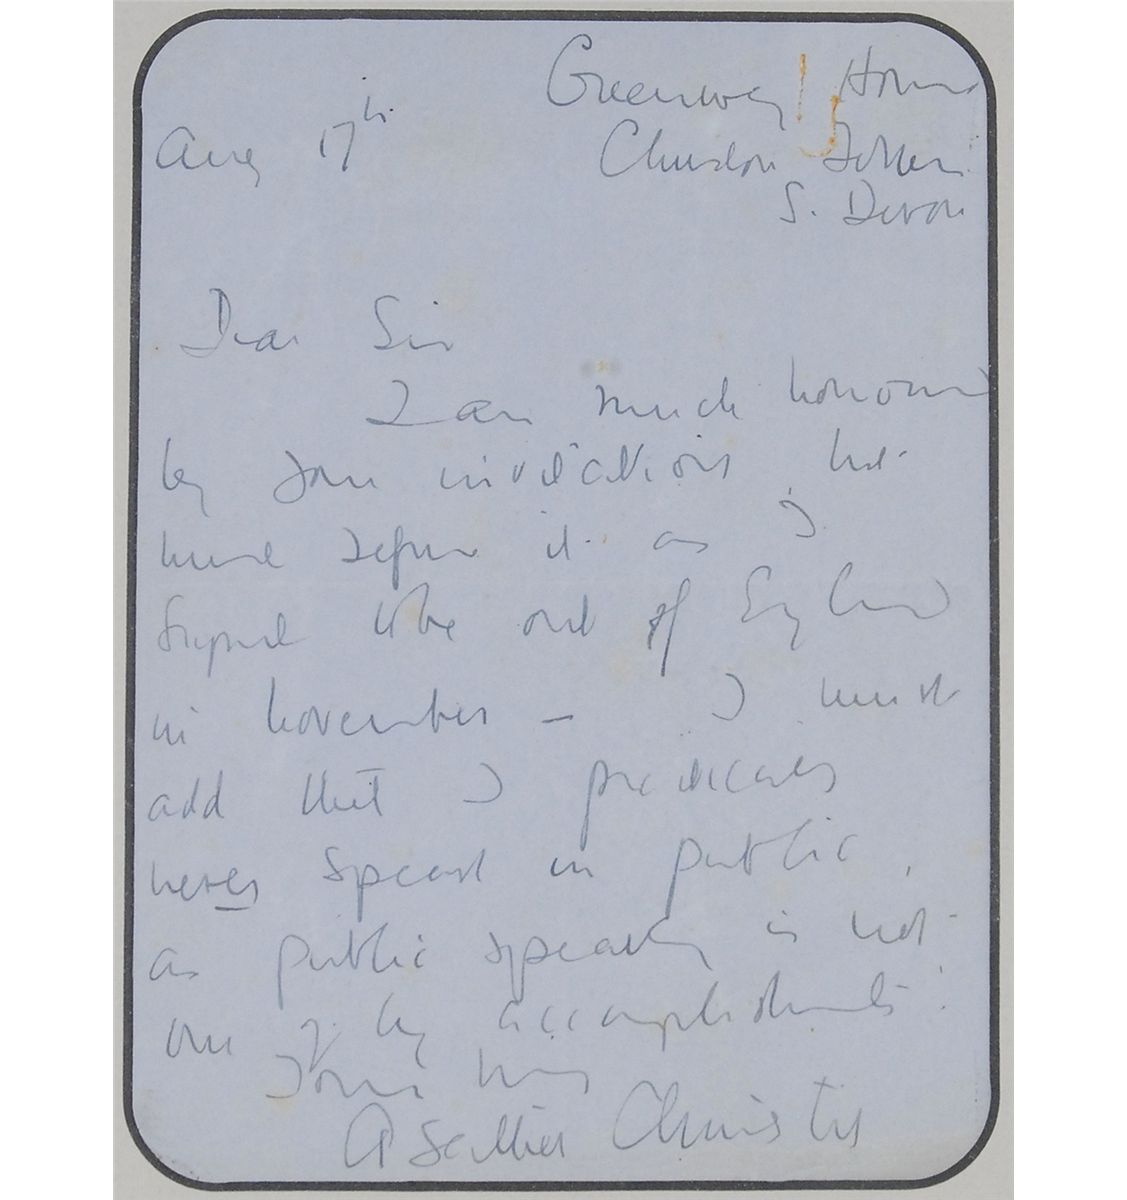 Greenway House
Aug 17th
Churston Ferrers
S. Devon
Dear Sir
I am much honoured
by your invitation, but
must refuse it as I
expect to be out of England
in November – I must
add that I practically
never speak in public,
as public speaking is not
one of my accomplishments!
Yours truly
Agatha Christie